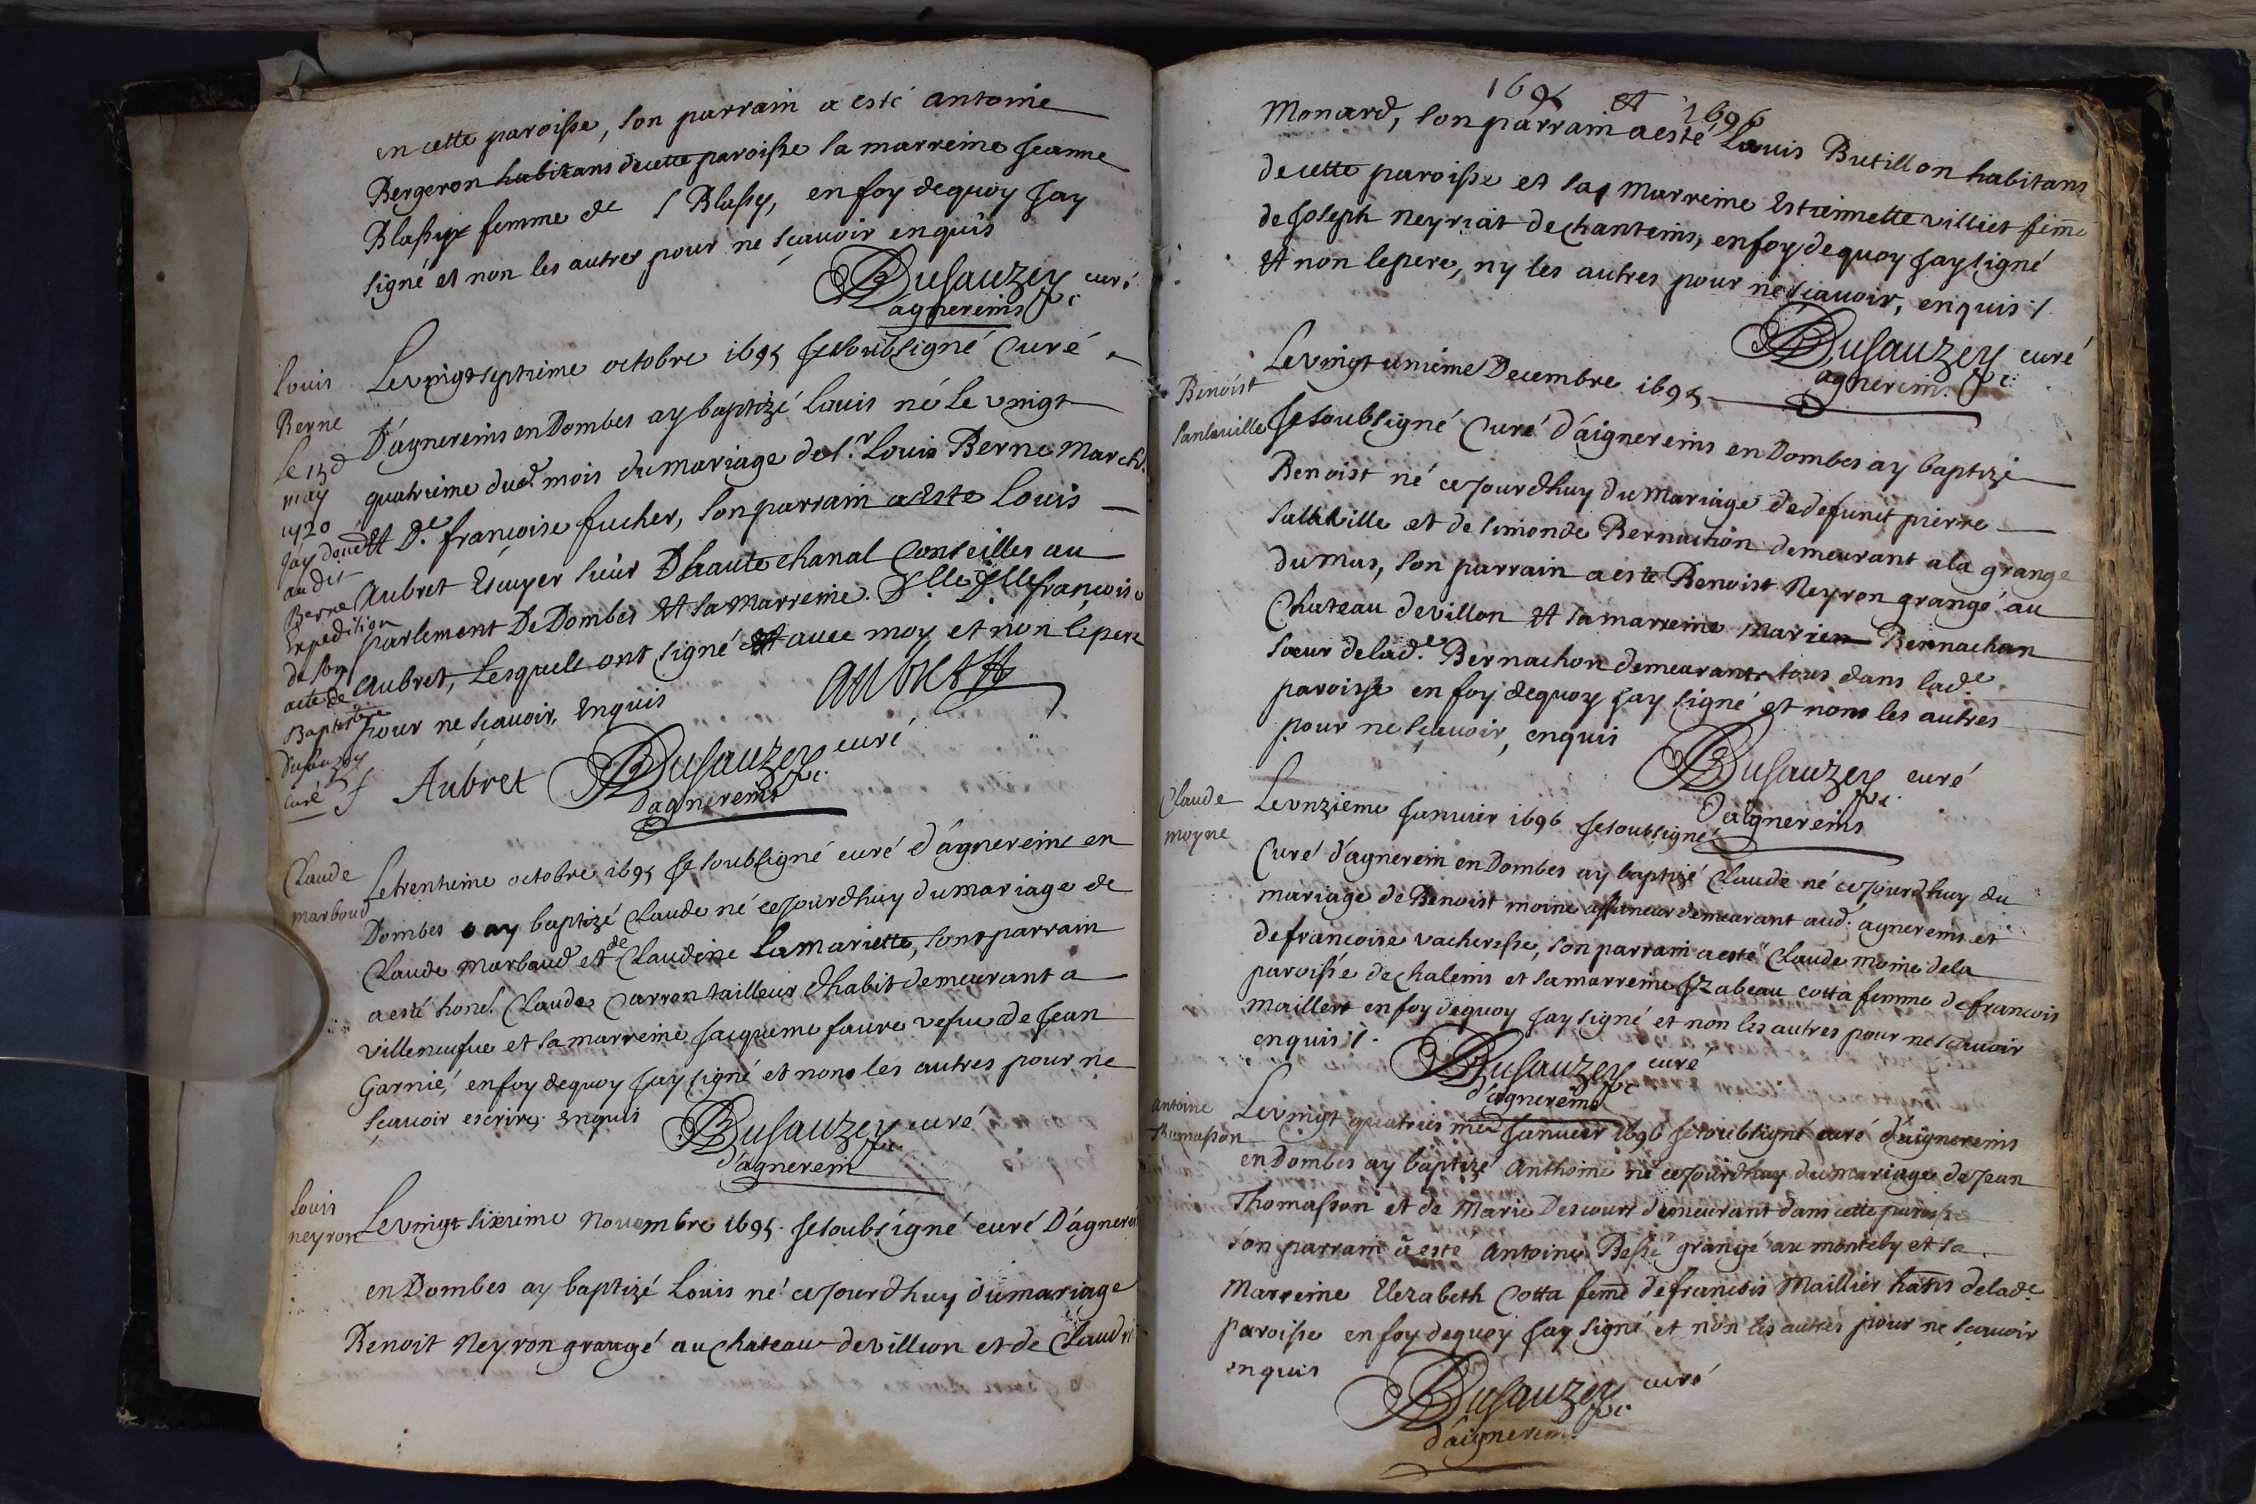 en cette paroisse, son parrain a esté antoine
Bergeron habitans de cette paroisse sa marreine Jeanne
Blassy femme de s Blassy, en foy de quoy Jay
signé et non les autres pour ne sçauoir enquis
Dusauzey curé
d'agnereins
Louis
Berne
Le 15e
may
1720
Jay donné
au dit
Berne
Expedition
de son
acte de
Baptesme
Dusauzey
curé
Le vingt septieme octobre 1695 Je soubsigné Curé
D'agnereins en Dombes ay baptizé Louis né le vingt
quatrieme dud. mois du mariage de Sr. Louis Berne March.
et De. françoise fucher, son parrain a esté Louis
Aubret Escuyer sieur D hautechanal Conseiller au
parlement De Dombes et sa Marreine. Dlle françoise
Aubret, Lesquels ont signé auec moy et non le pere
Pour ne sçauoir, Enquis
aubrett
Aubret Dusauzey curé
d'agnereins
Claude
marboud
Le trentieme octobre 1695 Je soubsigné curé d'agnereins en
Dombes ay baptizé Claude né ce jourdhuy du mariage de
Claude Marbaud et de Claudine Lamariette, son parrain
a esté hone. Claude Carron tailleur dhabit demeurant a
villeneufue et sa marreine Jaqueme faure vefue de Jean
Garnié, en foy de quoy Jay signé et non les autres pour ne
sçauoir escrire, enquis
Dusauzey curé
d'agnerein
Louis
neyron
Le vingt sixieme Nouembre 1695. Je soubsigné curé D'agnerei
en Dombes ay baptizé Louis né ce jourdhuy du mariage
Benoit Neyron grangé au Chateau de villion et de Claudi
1695 et 1696
Monard, son parrain a esté Louis Butillon habitans
de cette paroisse et sa Marreine Estiennette villiet feme
de Joseph Neyriat de chanteins, en foy de quoy Jay signé
et non le pere, ny les autres pour ne sçauoir, enquis /
Dusauzey curé
agnerein
Benoist
Le vingt unieme Decembre 1695
Je soubsigné Curé d'aignereins en Dombes ay baptizé
Benoist né ce jourdhuy du Mariage de defunct pierre
et de simonde Bernachon demeurant a la grange
du Mus, son parrain a esté Benoist Neyron grangé au
Chateau de villon et sa marreine Marie Bernachon
soeur de lade. Bernachon demeurants tous dans lade.
paroisse en foy de quoy Jay signé et non les autres
pour ne sçauoir, enquis
Dusauzey curé
d'aignereins
Claude
moyne
Le unzieme Januier 1696 Je soubsigné
Curé d'agnerein en Dombes ay baptizé Claude né ce jourdhuy du
mariage de Benoist moine affaneur demeurant aud. agnereins et
de francoise vacheresse, son parrain a esté Claude moine de la
paroisse de chaleins et sa marreine Izabeau cotta femme de francois
maillert en foy de quoy Jay signé et non les autres pour ne sçauoir
enquis /.
Dusauzey curé
d'agnereins
Antoine
Thomasson
Le vingt quatrieme Januier 1696 Je soubsigné curé d'aignereins
en Dombes ay baptizé Anthoine né ce jourdhuy du mariage de Jean
Thomasson et de Marie Descours demeurant dans cette paroisse
son parrain a esté Antoine Bessé grangé au montely et sa
Marreine Elezabeth Cotta feme de francois Maillier hatns de lade.
paroisse en foy de quoy Jay signé et non les autres pour ne sçauoir
enquis
Dusauzey curé
d'aignerein